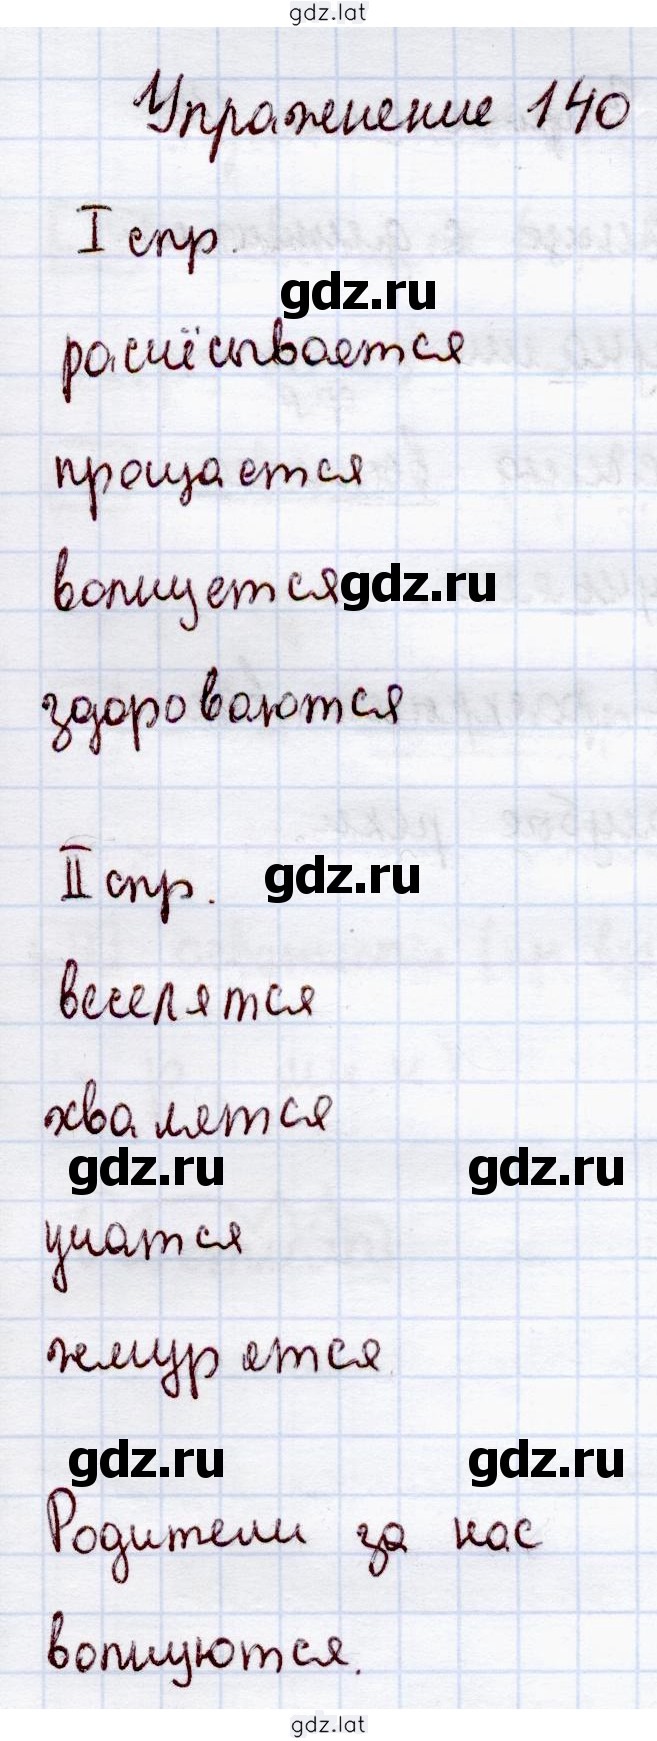 gdz.lat
Упражнение 140
I спр.
gdz.ru
расчёсывается
прощается
волнуется gdz.ru
здороваются
II спр. gdz.ru
веселятся
хвалятся
gdz.ru gdz.ru
учатся
жмурятся
gdz.ru gdz.ru
Родители за нас
волнуются.
gdz.lat